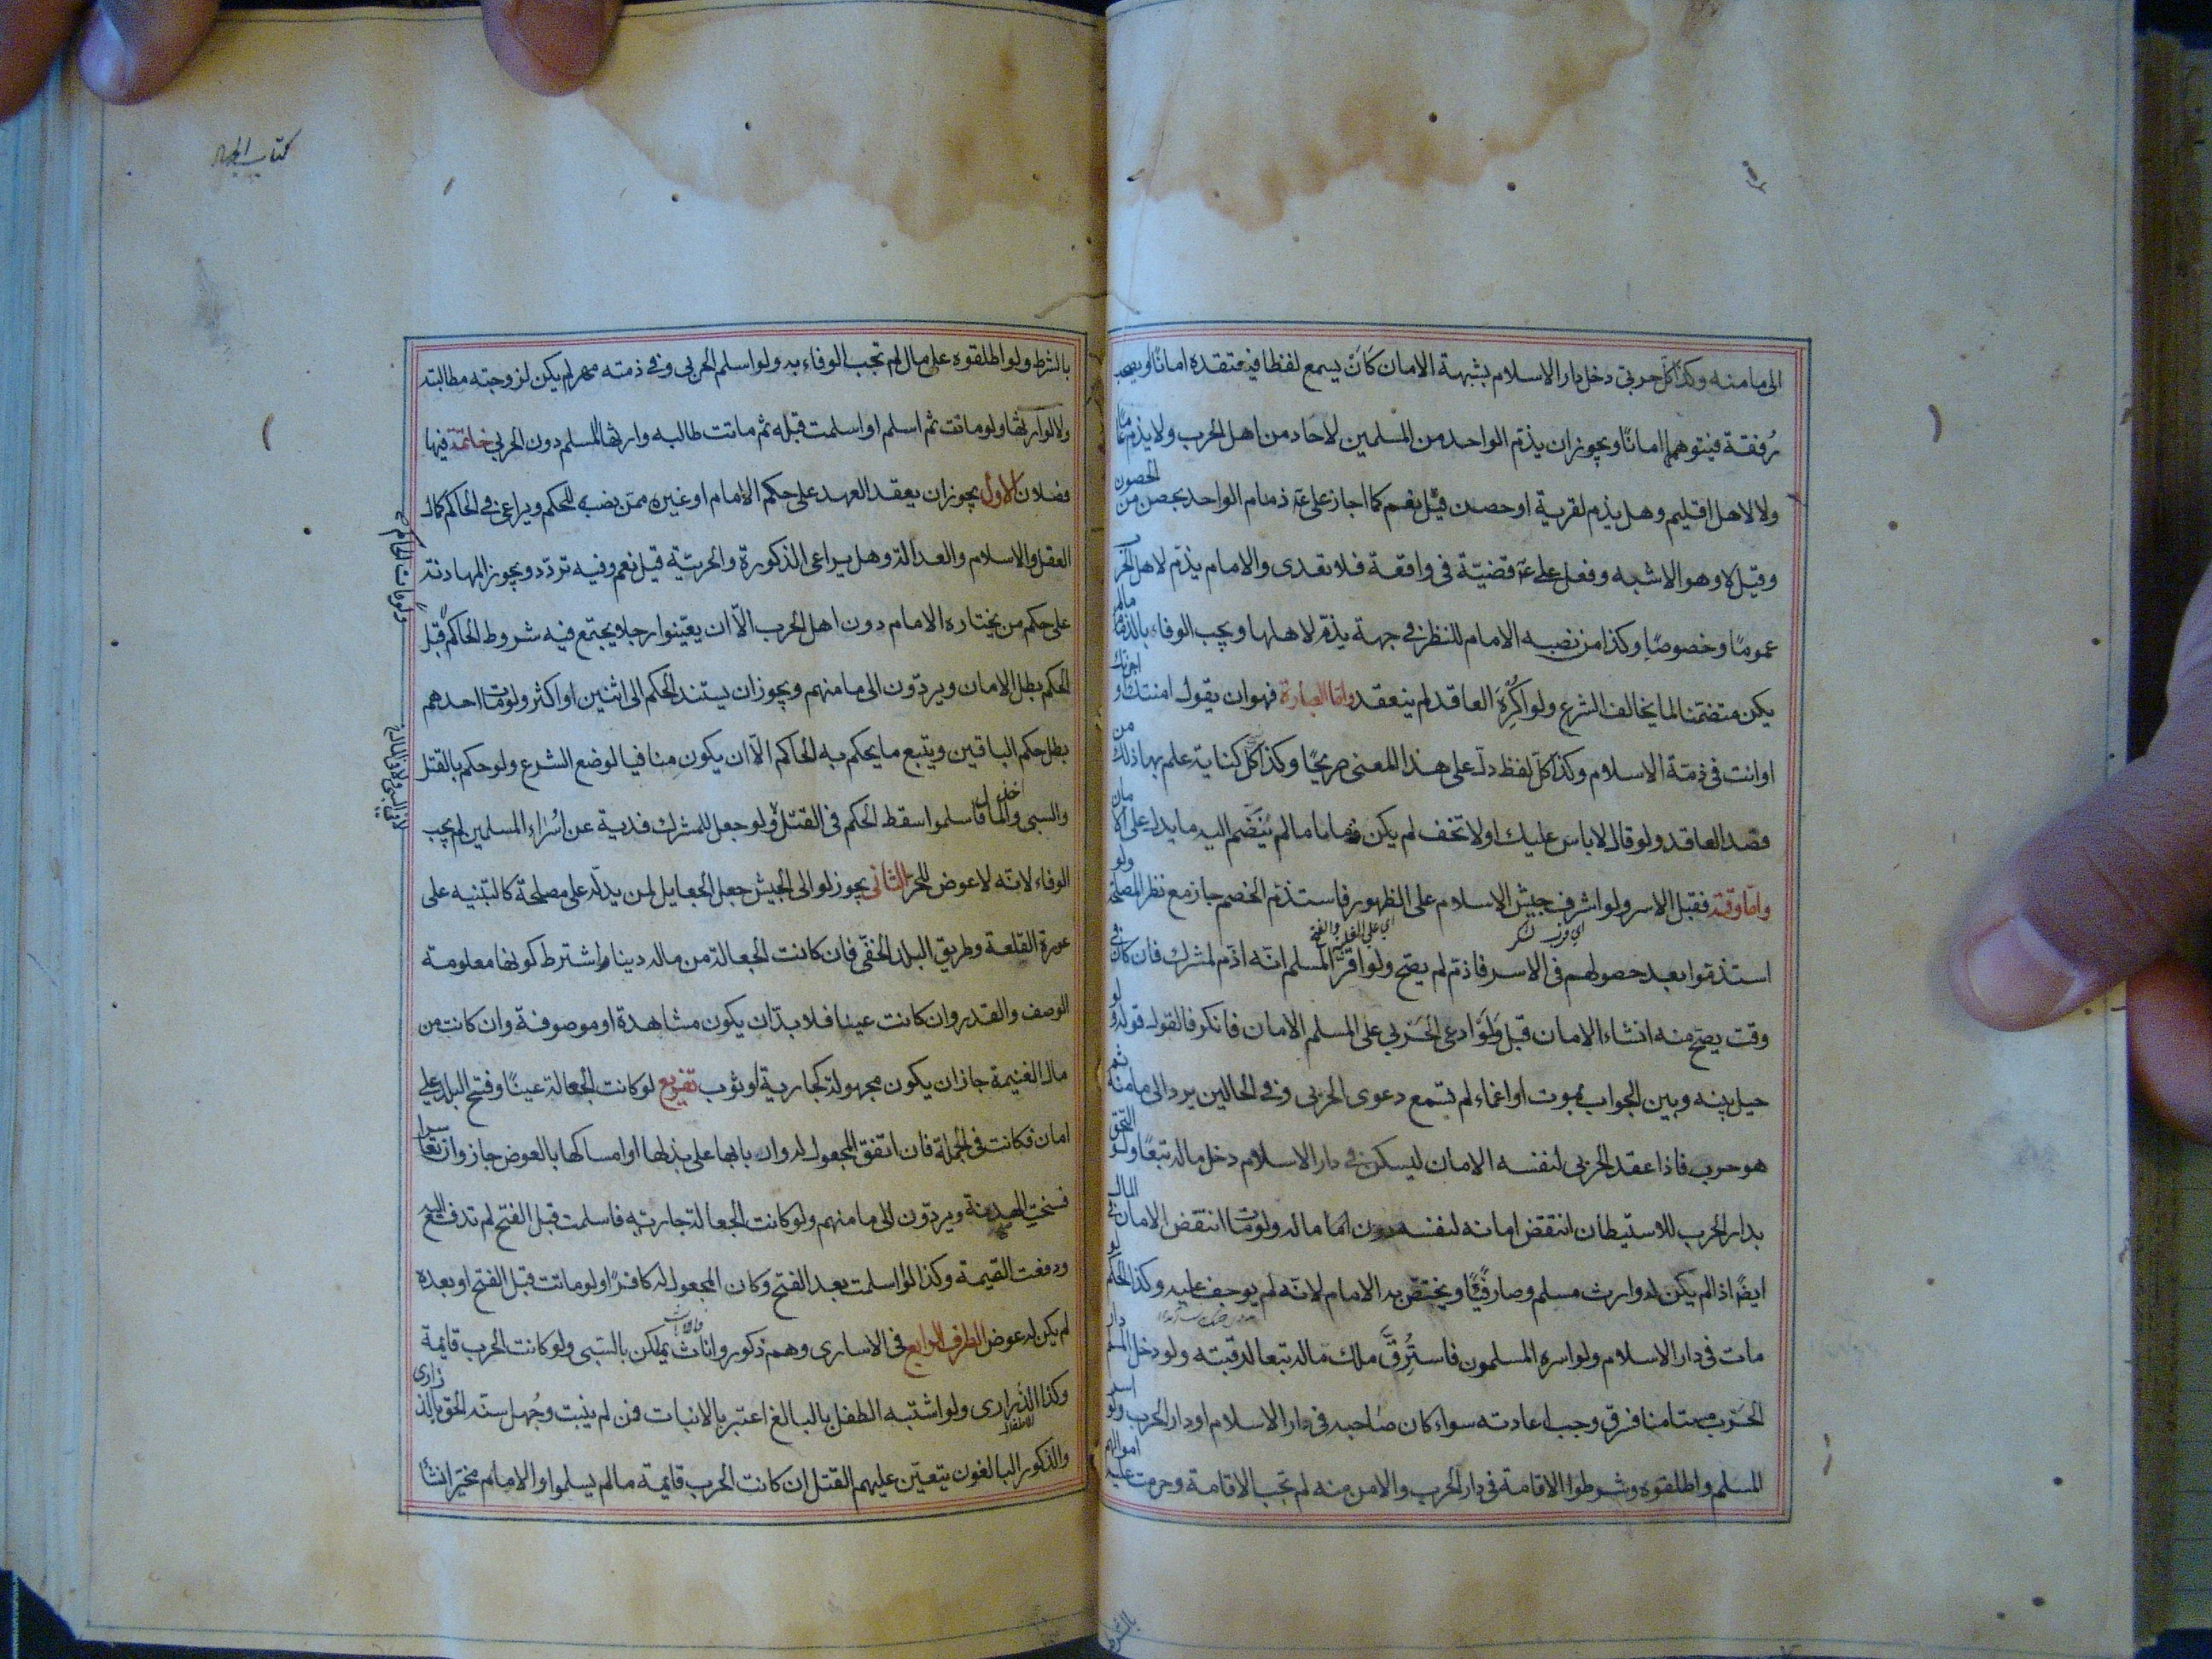 الى مامنه وكذا كل حربي دخل دار الاسلام بشبهة الامان كان يسمع لفظا فيعتقده امانا او يصحب
رفقة فيتوهمها امانا ويجوز ان يذم الواحد من المسلمين لاحاد من اهل الحرب ولا يذم عاما
ولا لاهل اقليم وهل يذم لقرية او حصن قيل نعم كما اجاز علي ع ذمام الواحد بحصن من الحصون
وقيل لا وهو الاشبه وفعل علي ع قضية في واقعة فلا تعدى والامام يذم لاهل الحرب
عموما وخصوصا وكذا من نصبه الامام للنظر في جهة يذم لاهلها ويجب الوفاء بالذمام مالم
يكن متضمنا لما يخالف الشرع ولو اكره العاقد لم ينعقد واما العبارة فهو ان يقول امنتك او اجرتك
او انت في ذمة الاسلام وكذا كل لفظ دل على هذا المعنى صريحا وكذا كل كناية علم بها ذلك من
قصد العاقد ولو قال لا باس عليك او لا تخف لم يكن ذماما ما لم ينضم اليه ما يدل على الامان
واما وقته فقبل الاسر ولو اشرف جيش الاسلام على الظهور فاستذم الخصم جاز مع نظر المصلحة ولو
استذموا بعد حصولهم في الاسر فاذم لم يصح ولو اقر المسلم انه اذم لمشرك فان كان في
وقت يصح منه انشاء الامان قبل ولو ادعى الحربي على المسلم الامان فانكر فالقول قوله ولو
حيل بينه وبين الجواب بموت او اغماء لم تسمع دعوى الحربي وفي الحالين يرد الى مامنه ثم
هو حرب فاذا عقد الحربي لنفسه الامان ليسكن في دار الاسلام دخل ماله تبعا ولو التحق
بدار الحرب للاستيطان انتقض امانه لنفسه دون ماله ولو مات انتقض الامان في المال
ايضا اذا لم يكن له وارث مسلم وصار فيئا ويختص به الامام لانه لم يوجف عليه وكذا الحكم لو
مات في دار الاسلام ولو اسره المسلمون فاسترق ملك ماله تبعا لرقبته ولو دخل المسلم دار
الحرب مستامنا فسرق وجب اعادته سواء كان صاحبه في دار الاسلام او دار الحرب ولو اسر
المسلم واطلقوه وشرطوا الاقامة في دار الحرب والامن منه لم تجب الاقامة وحرمت عليه اموالهم
كتاب الجهاد
بالشرط ولو اطلقوه على مال لم تجب الوفاء به ولو اسلم الحربي وفي ذمته مهر لم يكن لزوجته مطالبته
ولا لوارثها ولو ماتت ثم اسلم او اسلمت قبله ثم ماتت طالبه وارثها المسلم دون الحربي خاتمة فيها
فصلان الاول يجوز ان يعقد العهد على حكم الامام او غيره ممن نصبه للحكم ويراعى في الحاكم كمال
العقل والاسلام والعدالة وهل يراعى الذكورة والحرية قيل نعم وفيه تردد ويجوز المهادنة
على حكم من يختاره الامام دون اهل الحرب الا ان يعينوا رجلا يجتمع فيه شروط الحاكم قبل
الحكم بطل الامان ويردون الى مامنهم ويجوز ان يستند الحكم الى اثنين او اكثر ولو مات احدهم
بطل حكم الباقين ويتبع ما يحكم به الحاكم الا ان يكون منافيا لوضع الشرع ولو حكم بالقتل
والسبي واخذ المال فاسلموا سقط الحكم في القتل ولو جعل للمشرك فدية عن اسراء المسلمين لم يجب
الوفاء لانه لا عوض للحر الثاني يجوز لوالي الجيش جعل الجعايل لمن يدله على مصلحة كالتنبيه على
عورة القلعة وطريق البلد الخفي فان كانت الجعالة من ماله دينا اشترط كونها معلومة
الوصف والقدر وان كانت عينا فلا بد ان يكون مشاهدة او موصوفة وان كانت من
مال الغنيمة جاز ان يكون مجهولة كجارية او ثوب تفريع لو كانت الجعالة عينا وفتح البلد على
امان فكانت في الجملة فان اتفق المجعول له واربابها على بذلها او امساكها بالعوض جاز وان تعاسرا
فسخت الهدنة ويردون الى مامنهم ولو كانت الجعالة جارية فاسلمت قبل الفتح لم تدفع اليه
ودفعت القيمة وكذا لو اسلمت بعد الفتح وكان المجعول له كافرا ولو ماتت قبل الفتح او بعده
لم يكن له عوض الطرف الرابع في الاسارى وهم ذكور واناث فالاناث يملكن بالسبي ولو كانت الحرب قايمة
وكذا الذراري ولو اشتبه الطفل بالبالغ اعتبر بالانبات فمن لم ينبت وجهل سنه الحق بالذراري
والذكور البالغون يتعين عليهم القتل ان كانت الحرب قايمة ما لم يسلموا والامام مخير ان شاء